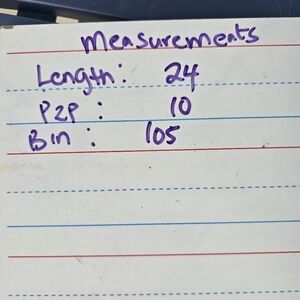 Measurements
Length: 24
P2P : 10
Bin : 105